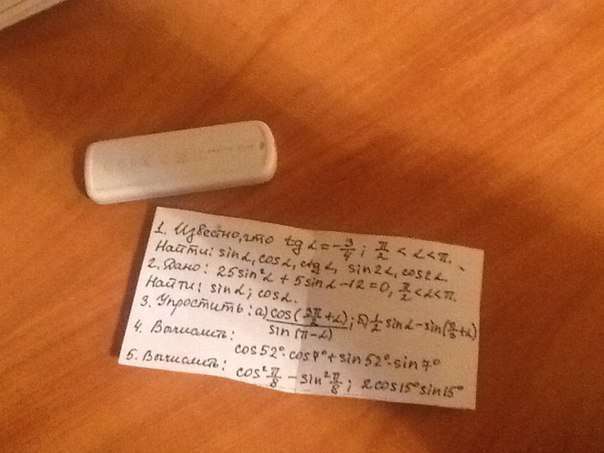 1. Известно, что tg α = -3/4; π/2 < α < π.
Найти: sin α, cos α, ctg α, sin 2α, cos 2α.
2. Дано: 25 sin²α + 5 sin α - 12 = 0, π/2 < α < π.
Найти: sin α; cos α.
3. Упростить: а) cos(3π/2 + α) / sin(π - α); б) 1/2 sin α - sin(π/3 + α)
4. Вычислить:
cos 52° · cos 7° + sin 52° · sin 7°
5. Вычислить: cos² π/8 - sin² π/8; 2 cos 15° sin 15°